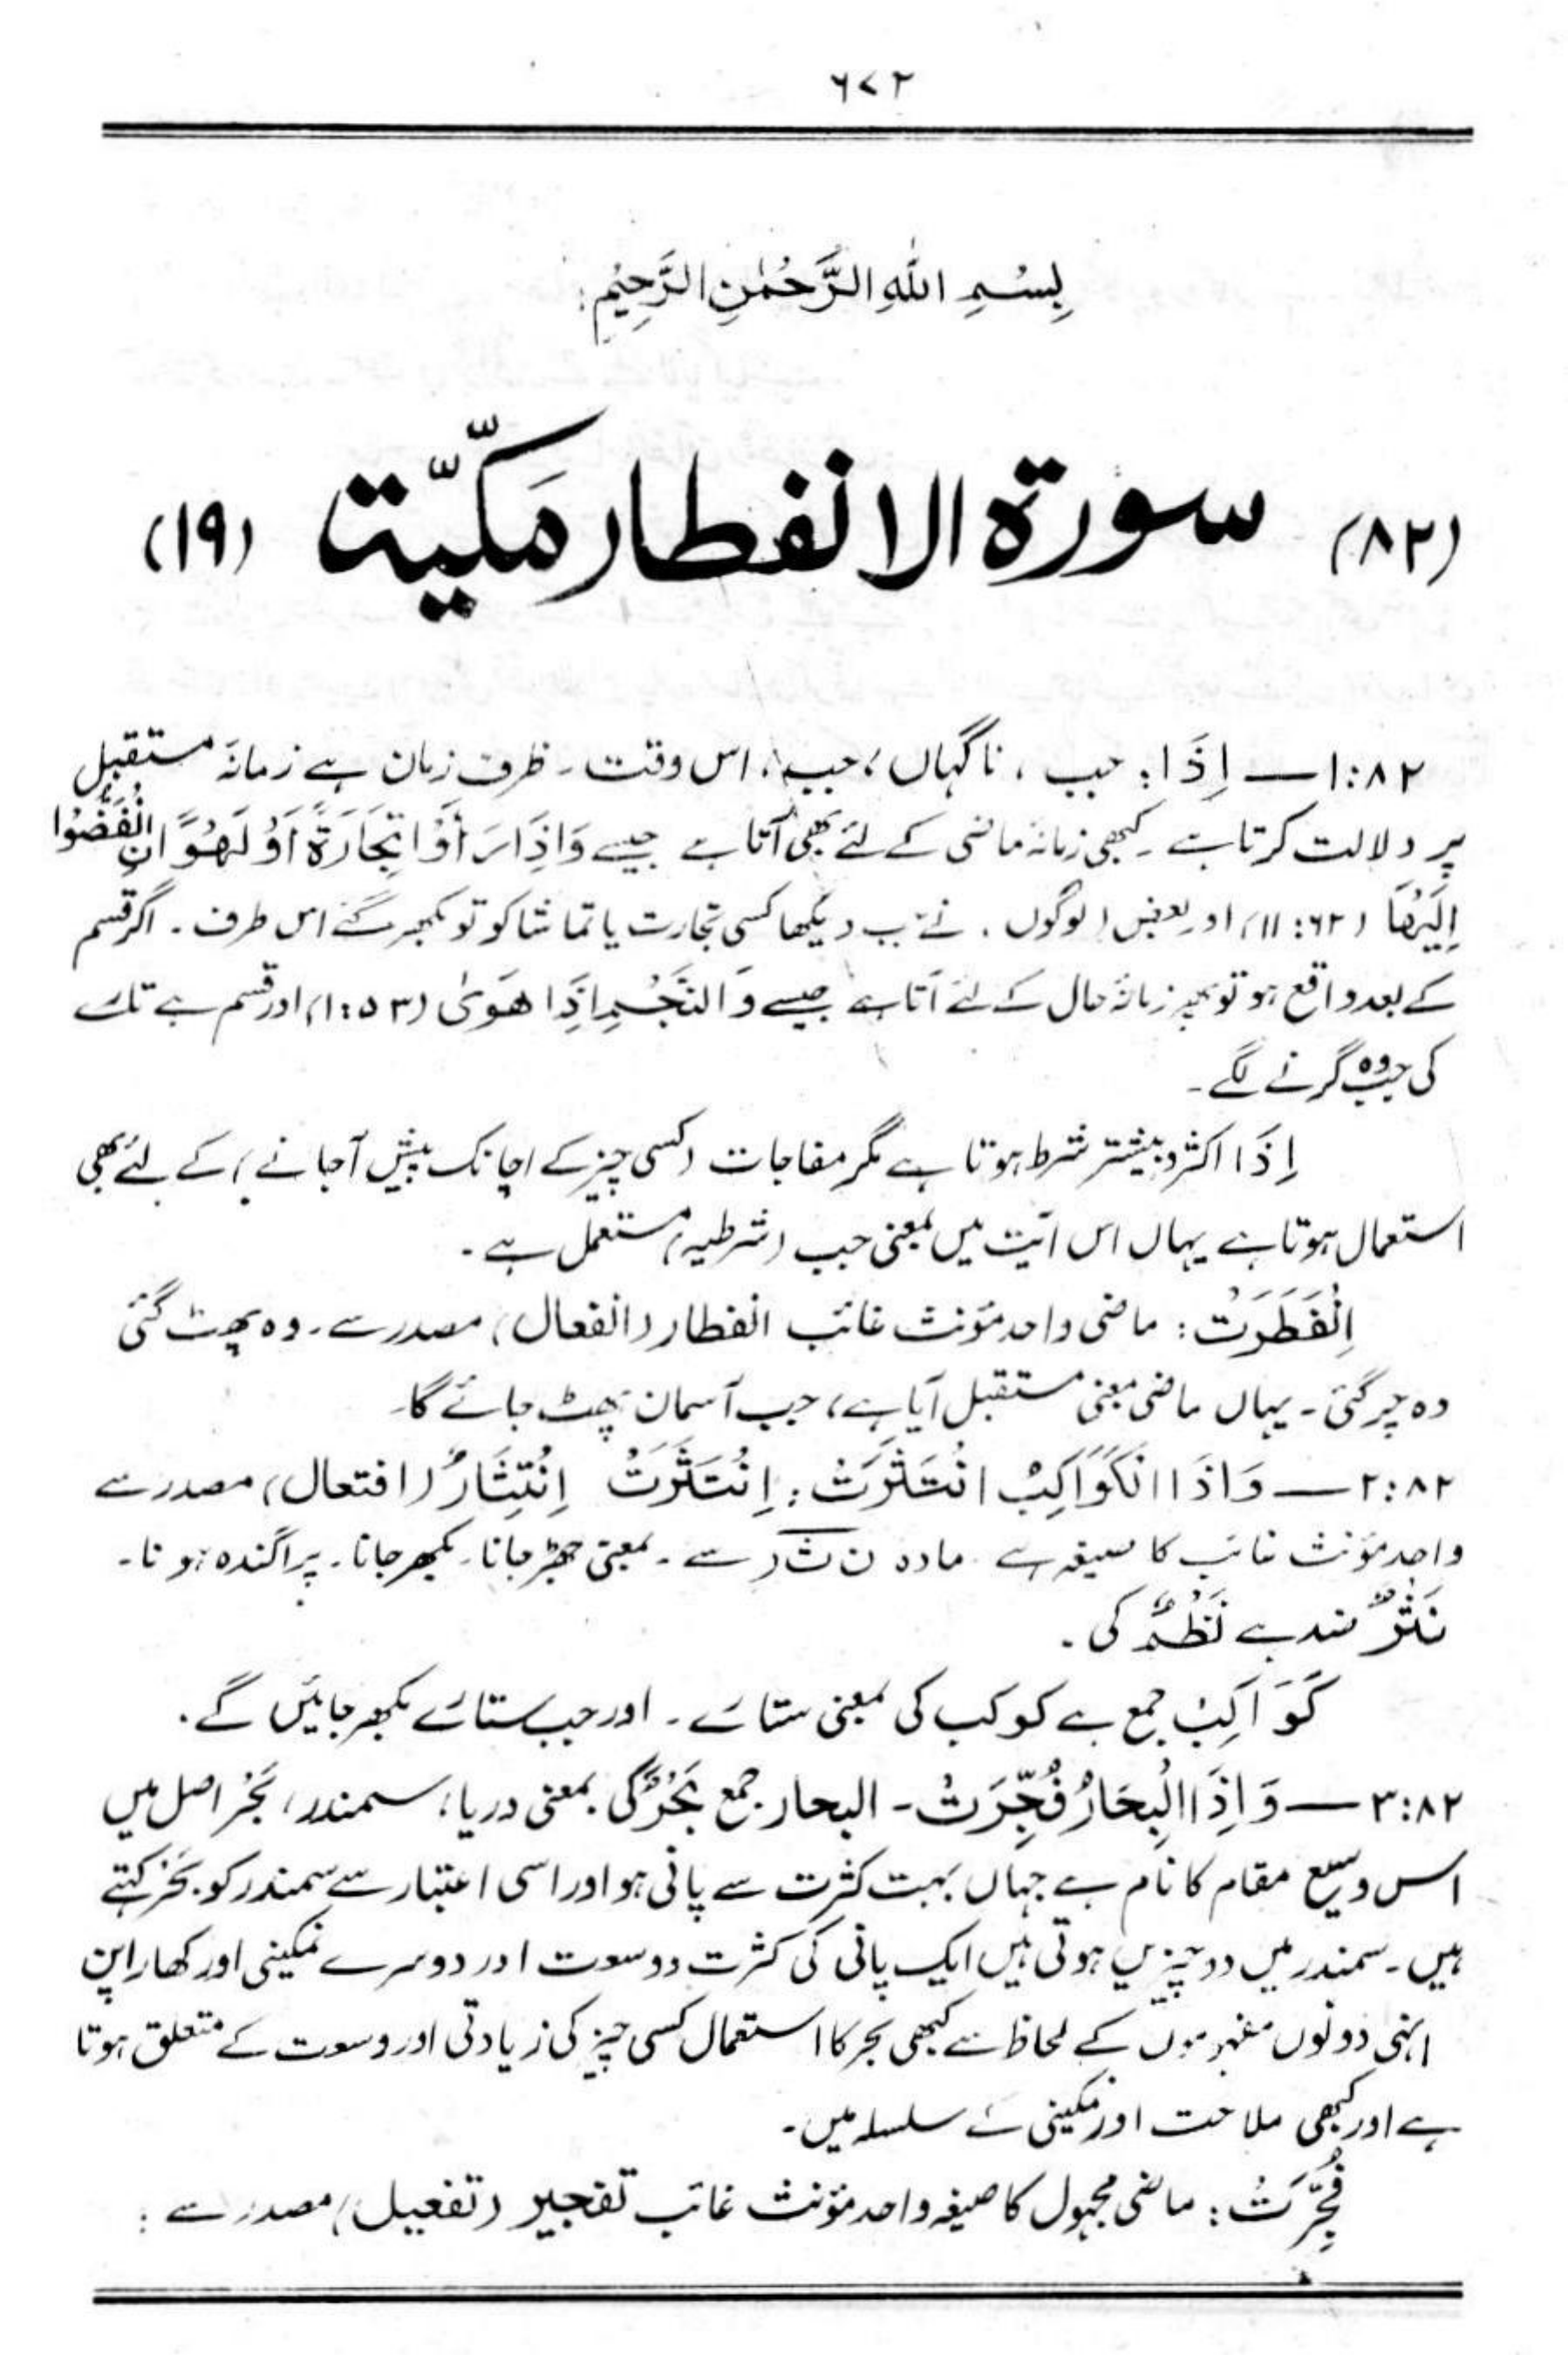 ۶۷۲
بِسْمِ اللّٰهِ الرَّحْمٰنِ الرَّحِيْمِ:
(۸۲) سورۃ الانفطار مَكِّيَّۃ (۱۹)
۱:۸۲ — اِذَا: جب ، ناگہاں ، جب ، اس وقت۔ ظرف زمان ہے زمانۂ مستقبل
پر دلالت کرتا ہے ۔ کبھی زمانۂ ماضی کے لئے بھی آتا ہے جیسے وَاِذَا رَاَوْا تِجَارَةً اَوْ لَهْوًا انْفَضُّوْا
اِلَيْهَا (۱۱:۶۲) اور بعض لوگوں نے جب دیکھا کسی تجارت یا تماشا کو تو بکھر گئے اس طرف ۔ اگر قسم
کے بعد واقع ہو تو پھر زمانۂ حال کے لئے آتا ہے جیسے وَ النَّجْمِ اِذَا هَوٰى (۱:۵۳) اور قسم ہے تارے
کی جب وہ گرنے لگے ۔
اِذَا اکثر و بیشتر شرط ہوتا ہے مگر مفاجات (کسی چیز کے اچانک پیش آجانے) کے لئے بھی
استعمال ہوتا ہے یہاں اس آیت میں بمعنی جب (شرطیہ) مستعمل ہے ۔
اِنْفَطَرَتْ : ماضی واحد مؤنث غائب انفطار (انفعال) مصدر سے ۔ وہ پھٹ گئی
وہ چر گئی ۔ یہاں ماضی بمعنی مستقبل آیا ہے، جب آسمان پھٹ جائے گا۔
۲:۸۲ — وَاِذَا الْكَوَاكِبُ انْتَثَرَتْ : اِنْتَثَرَتْ اِنْتِثَارٌ (افتعال) مصدر سے
واحد مؤنث غائب کا صیغہ ہے مادہ ن ث ر سے ۔ بمعنی جھڑ جانا۔ بکھر جانا۔ پراگندہ ہونا۔
نَثْرٌ ضد ہے نَظْمٌ کی ۔
كَوَاكِبُ جمع ہے کوکب کی بمعنی ستارے ۔ اور جب ستارے بکھر جائیں گے ۔
۳:۸۲ — وَ اِذَا الْبِحَارُ فُجِّرَتْ ۔ البحار جمع بَحْرٌ کی بمعنی دریا، سمندر، بَحْر اصل میں
اس وسیع مقام کا نام ہے جہاں بہت کثرت سے پانی ہو اور اسی اعتبار سے سمندر کو بَحْر کہتے
ہیں ۔ سمندر میں دو چیزیں ہوتی ہیں ایک پانی کی کثرت و وسعت اور دوسرے نمکینی اور کھاراپن
انہی دونوں مفہوموں کے لحاظ سے کبھی بحر کا استعمال کسی چیز کی زیادتی اور وسعت کے متعلق ہوتا
ہے اور کبھی ملاحت اور نمکینی کے سلسلہ میں ۔
فُجِّرَتْ : ماضی مجہول کا صیغہ واحد مؤنث غائب تفجیر (تفعیل) مصدر سے :